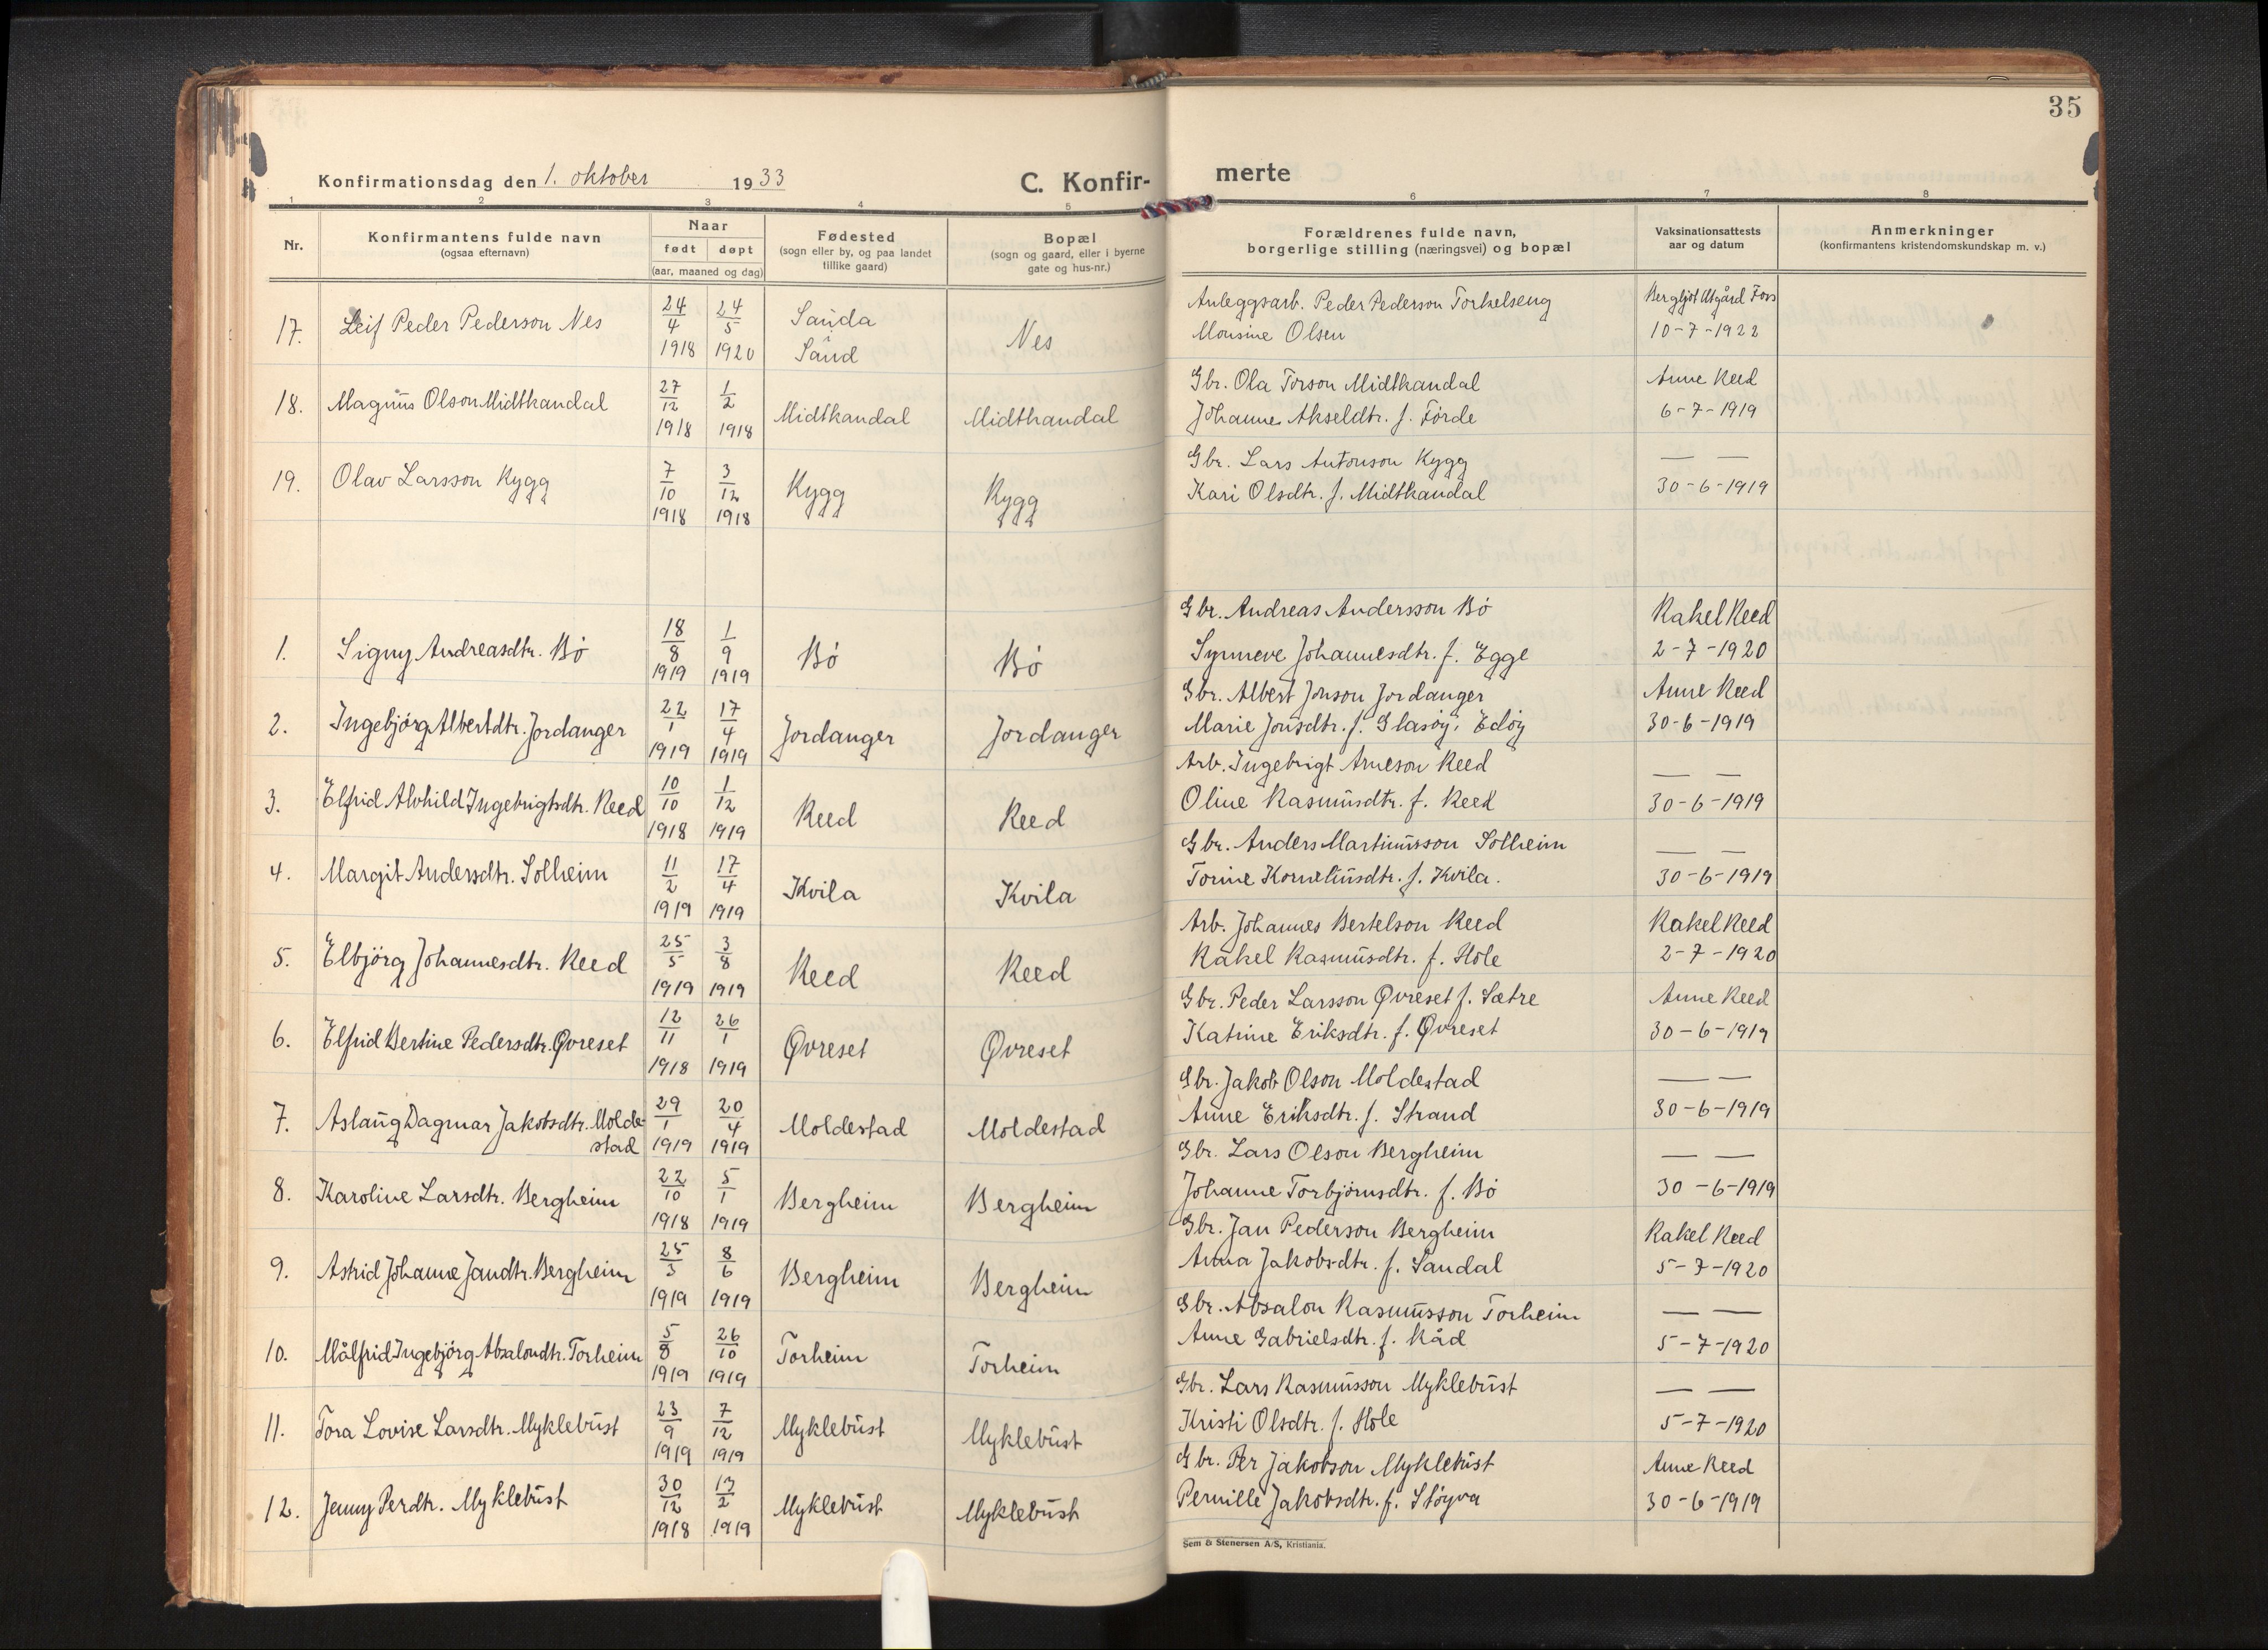 35
Konfirmationsdag den 1. oktober 1933 C. Konfir- merte
1 2 3 4 5 6 7 8
Nr. Konfirmantens fulde navn (ogsaa efternavn) Naar født døpt (aar, maaned og dag) Fødested (sogn eller by, og paa landet tillike gaard) Bopæl (sogn og gaard, eller i byerne gate og hus-nr.) Forældrenes fulde navn, borgerlige stilling (næringsvei) og bopæl Vaksinationsattests aar og datum Anmerkninger (konfirmantens kristendomskundskap m. v.)
17. Leif Peder Pederson Nes 24/4 1918 24/5 1920 Sauda Sand Nes Anleggsarb. Peder Pederson Torkelseng Bergljot Utgård Foss
Monsine Olsen 10-7-1922
18. Magnus Olson Midtkandal 27/12 1918 1/2 1918 Midtkandal Midtkandal Gbr. Ola Torson Midtkandal Anne Reed
Johanne Akseldtr. f. Førde 6-7-1919
19. Olav Larsson Rygg 7/10 1918 3/12 1918 Rygg Rygg Gbr. Lars Antonson Rygg — —
Kari Olsdtr. f. Midtkandal 30-6-1919
1. Signy Andreasdtr. Bø 18/8 1919 1/9 1919 Bø Bø Gbr. Andreas Andersson Bø Rakel Reed
Synneve Johannesdtr. f. Egge 2-7-1920
2. Ingebjørg Albertdtr. Jordanger 22/1 1919 17/4 1919 Jordanger Jordanger Gbr. Albert Jonson Jordanger Anne Reed
Marie Jonsdtr. f. Glasøy, Edøy 30-6-1919
3. Elfrid Alvhild Ingebrigtsdtr. Reed 10/10 1918 1/12 1919 Reed Reed Arb. Ingebrigt Arneson Reed — —
Oline Rasmusdtr. f. Reed 30-6-1919
4. Margit Andersdtr. Solheim 11/2 1919 17/4 1919 Kvila Kvila Gbr. Anders Martinusson Solheim — —
Torine Korneliusdtr. f. Kvila. 30-6-1919
5. Elbjörg Johannesdtr. Reed 25/5 1919 3/8 1919 Reed Reed Arb. Johannes Bertelson Reed Rakel Reed
Rakel Rasmusdtr. f. Hole 2-7-1920
6. Elfrid Bertine Pedersdtr. Øvreset 12/11 1918 26/1 1919 Øvreset Øvreset Gbr. Peder Larsson Øvreset f. Sætre Anne Reed
Katrine Eriksdtr. f. Øvreset 30-6-1919
7. Aslaug Dagmar Jakobsdtr. Molde- 29/1 1919 20/4 1919 Moldestad Moldestad Gbr. Jakob Olson Moldestad — —
stad Anne Eriksdtr. f. Strand 30-6-1919
8. Karoline Larsdtr. Bergheim 22/10 1918 5/1 1919 Bergheim Bergheim Gbr. Lars Olson Bergheim — —
Johanne Torbjørnsdtr. f. Bø 30-6-1919
9. Astrid Johanne Jandtr. Bergheim 25/3 1919 8/6 1919 Bergheim Bergheim Gbr. Jan Pederson Bergheim Rakel Reed
Anna Jakobsdtr. f. Sandal 5-7-1920
10. Målfrid Ingebjörg Absalondtr. Torheim 5/8 1919 26/10 1919 Torheim Torheim Gbr. Absalon Rasmusson Torheim — —
Anne Gabrielsdtr. f. Råd 5-7-1920
11. Tora Lovise Larsdtr. Myklebust 23/9 1919 7/12 1919 Myklebust Myklebust Gbr. Lars Rasmusson Myklebust — —
Kristi Olsdtr. f. Hole 5-7-1920
12. Jenny Perdtr. Myklebust 30/12 1918 13/2 1919 Myklebust Myklebust Gbr. Per Jakobson Myklebust Anne Reed
Pernille Jakobsdtr. f. Støyva 30-6-1919
Sem & Stenersen A/S, Kristiania.